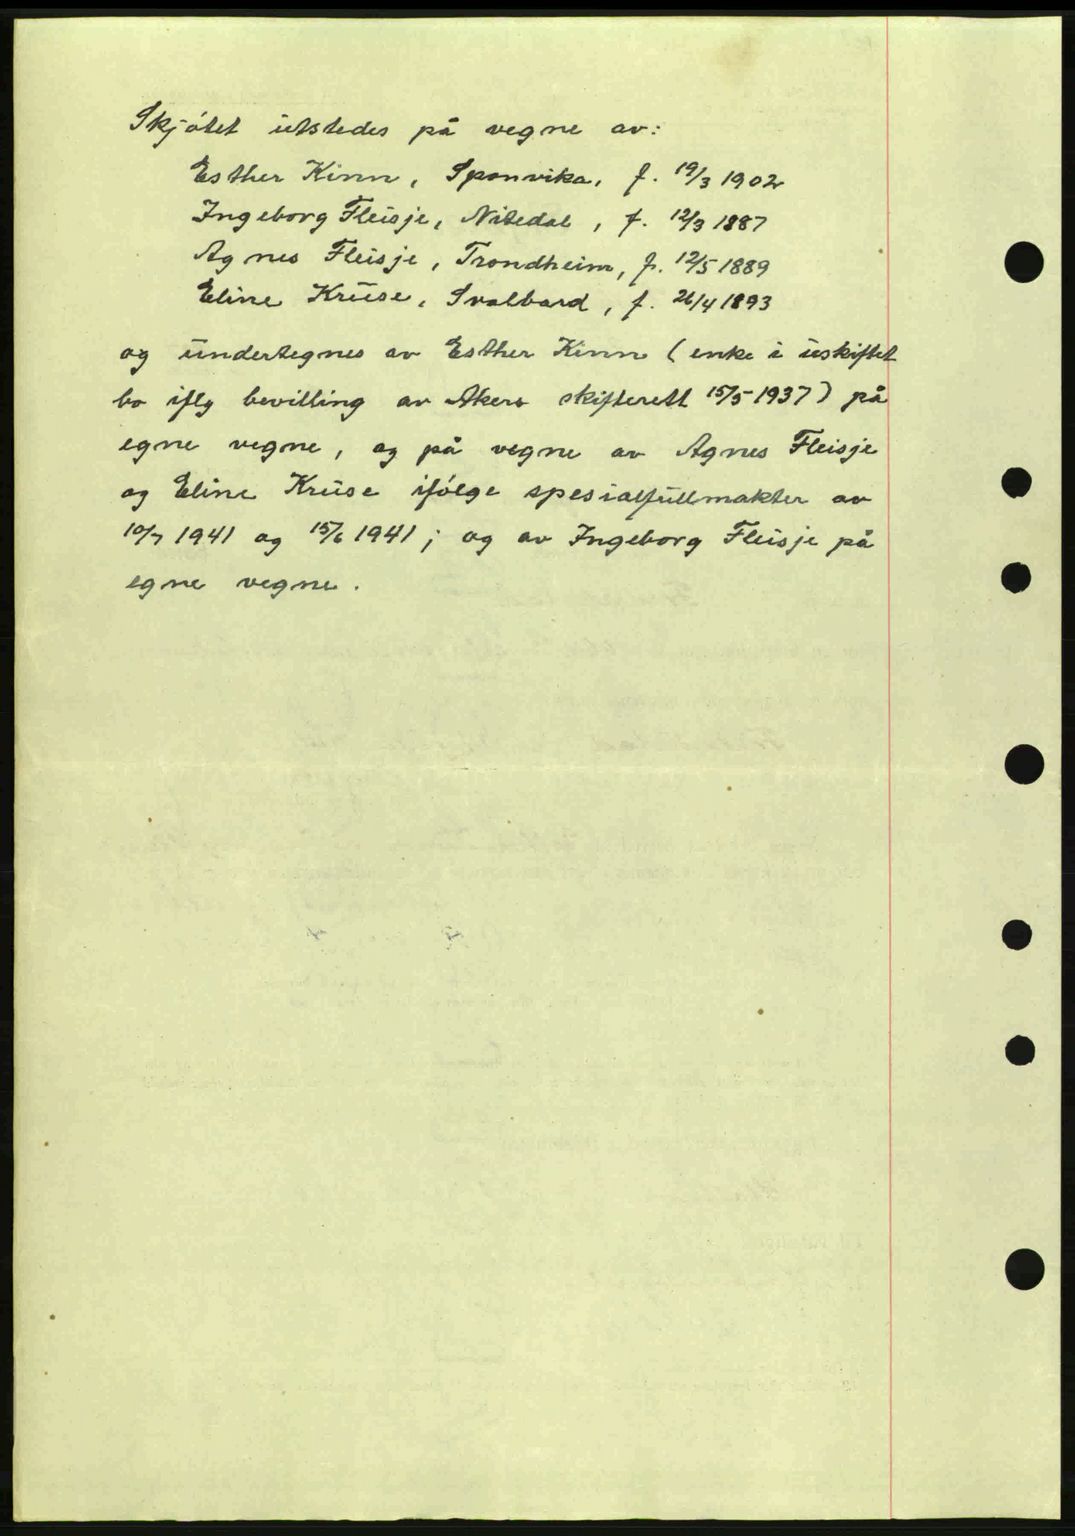 Skjøtet utstedes på vegne av:
Esther Kinn, Sponvika, f. 19/3 1902
Ingeborg Fleisje, Nitedal, f. 12/3 1887
Agnes Fleisje, Trondheim, f. 12/5 1889
Eline Kruse, Svalbard, f. 26/4 1893
og undertegnes av Esther Kinn (enke i uskiftet
bo iflg bevilling av Akers skifterett 15/5-1937) på
egne vegne, og på vegne av Agnes Fleisje
og Eline Kruse ifølge spesialfullmakter av
10/7 1941 og 15/6 1941; og av Ingeborg Fleisje på
egne vegne.